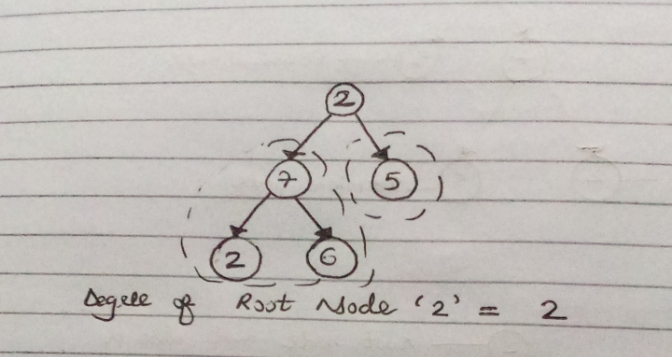 2
7 5
2 6
Degree of Root Node '2' = 2